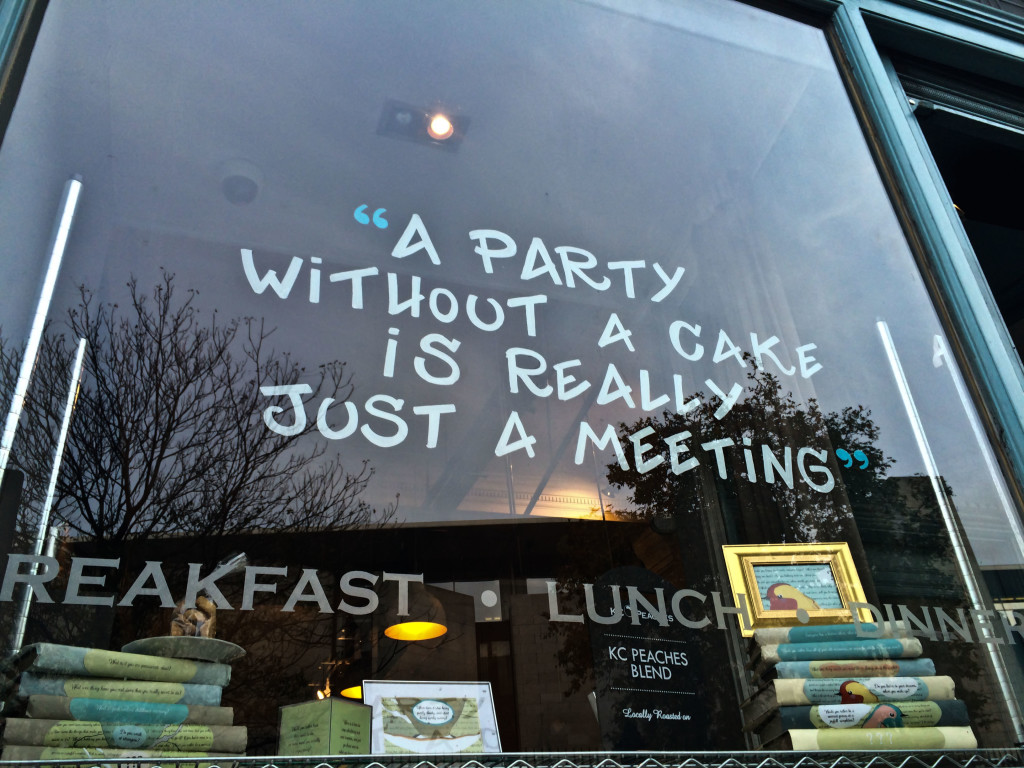 “A PARTY
WITHOUT A CAKE
IS REALLY
JUST A MEETING”
REAKFAST • LUNCH • DINNER
KC PEACHES
KC PEACHES
BLEND
Locally Roasted on
???